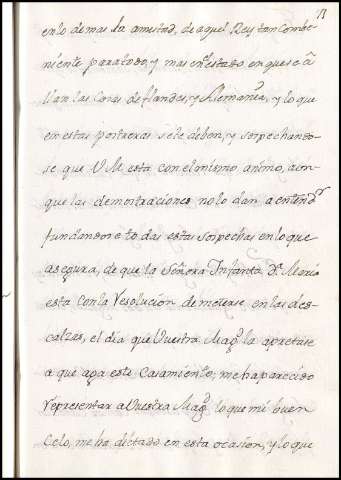 11
en lo demas la amistad, de aquel Rey tan Combe-
niente para todo, y mas en el estado en que se a
llan las Cosas de flandes, y Alemania, y lo que
en estas postreras se le deben, y sospechando-
se que V.M. esta con el mismo animo, aun-
que las demostraciones no lo dan a entendr
fundandose todas estas sospechas en lo que
asegura, de que la Señora Infanta Da. Maria
esta con la Resolucion de meterse, en las des-
calzas, el dia que Vuestra Magd. la apretase
a que aga este Casamiento; me ha parecido
Representar a Vuestra Magd. lo que mi buen
Celo, me ha dictado en esta ocasion, y lo que